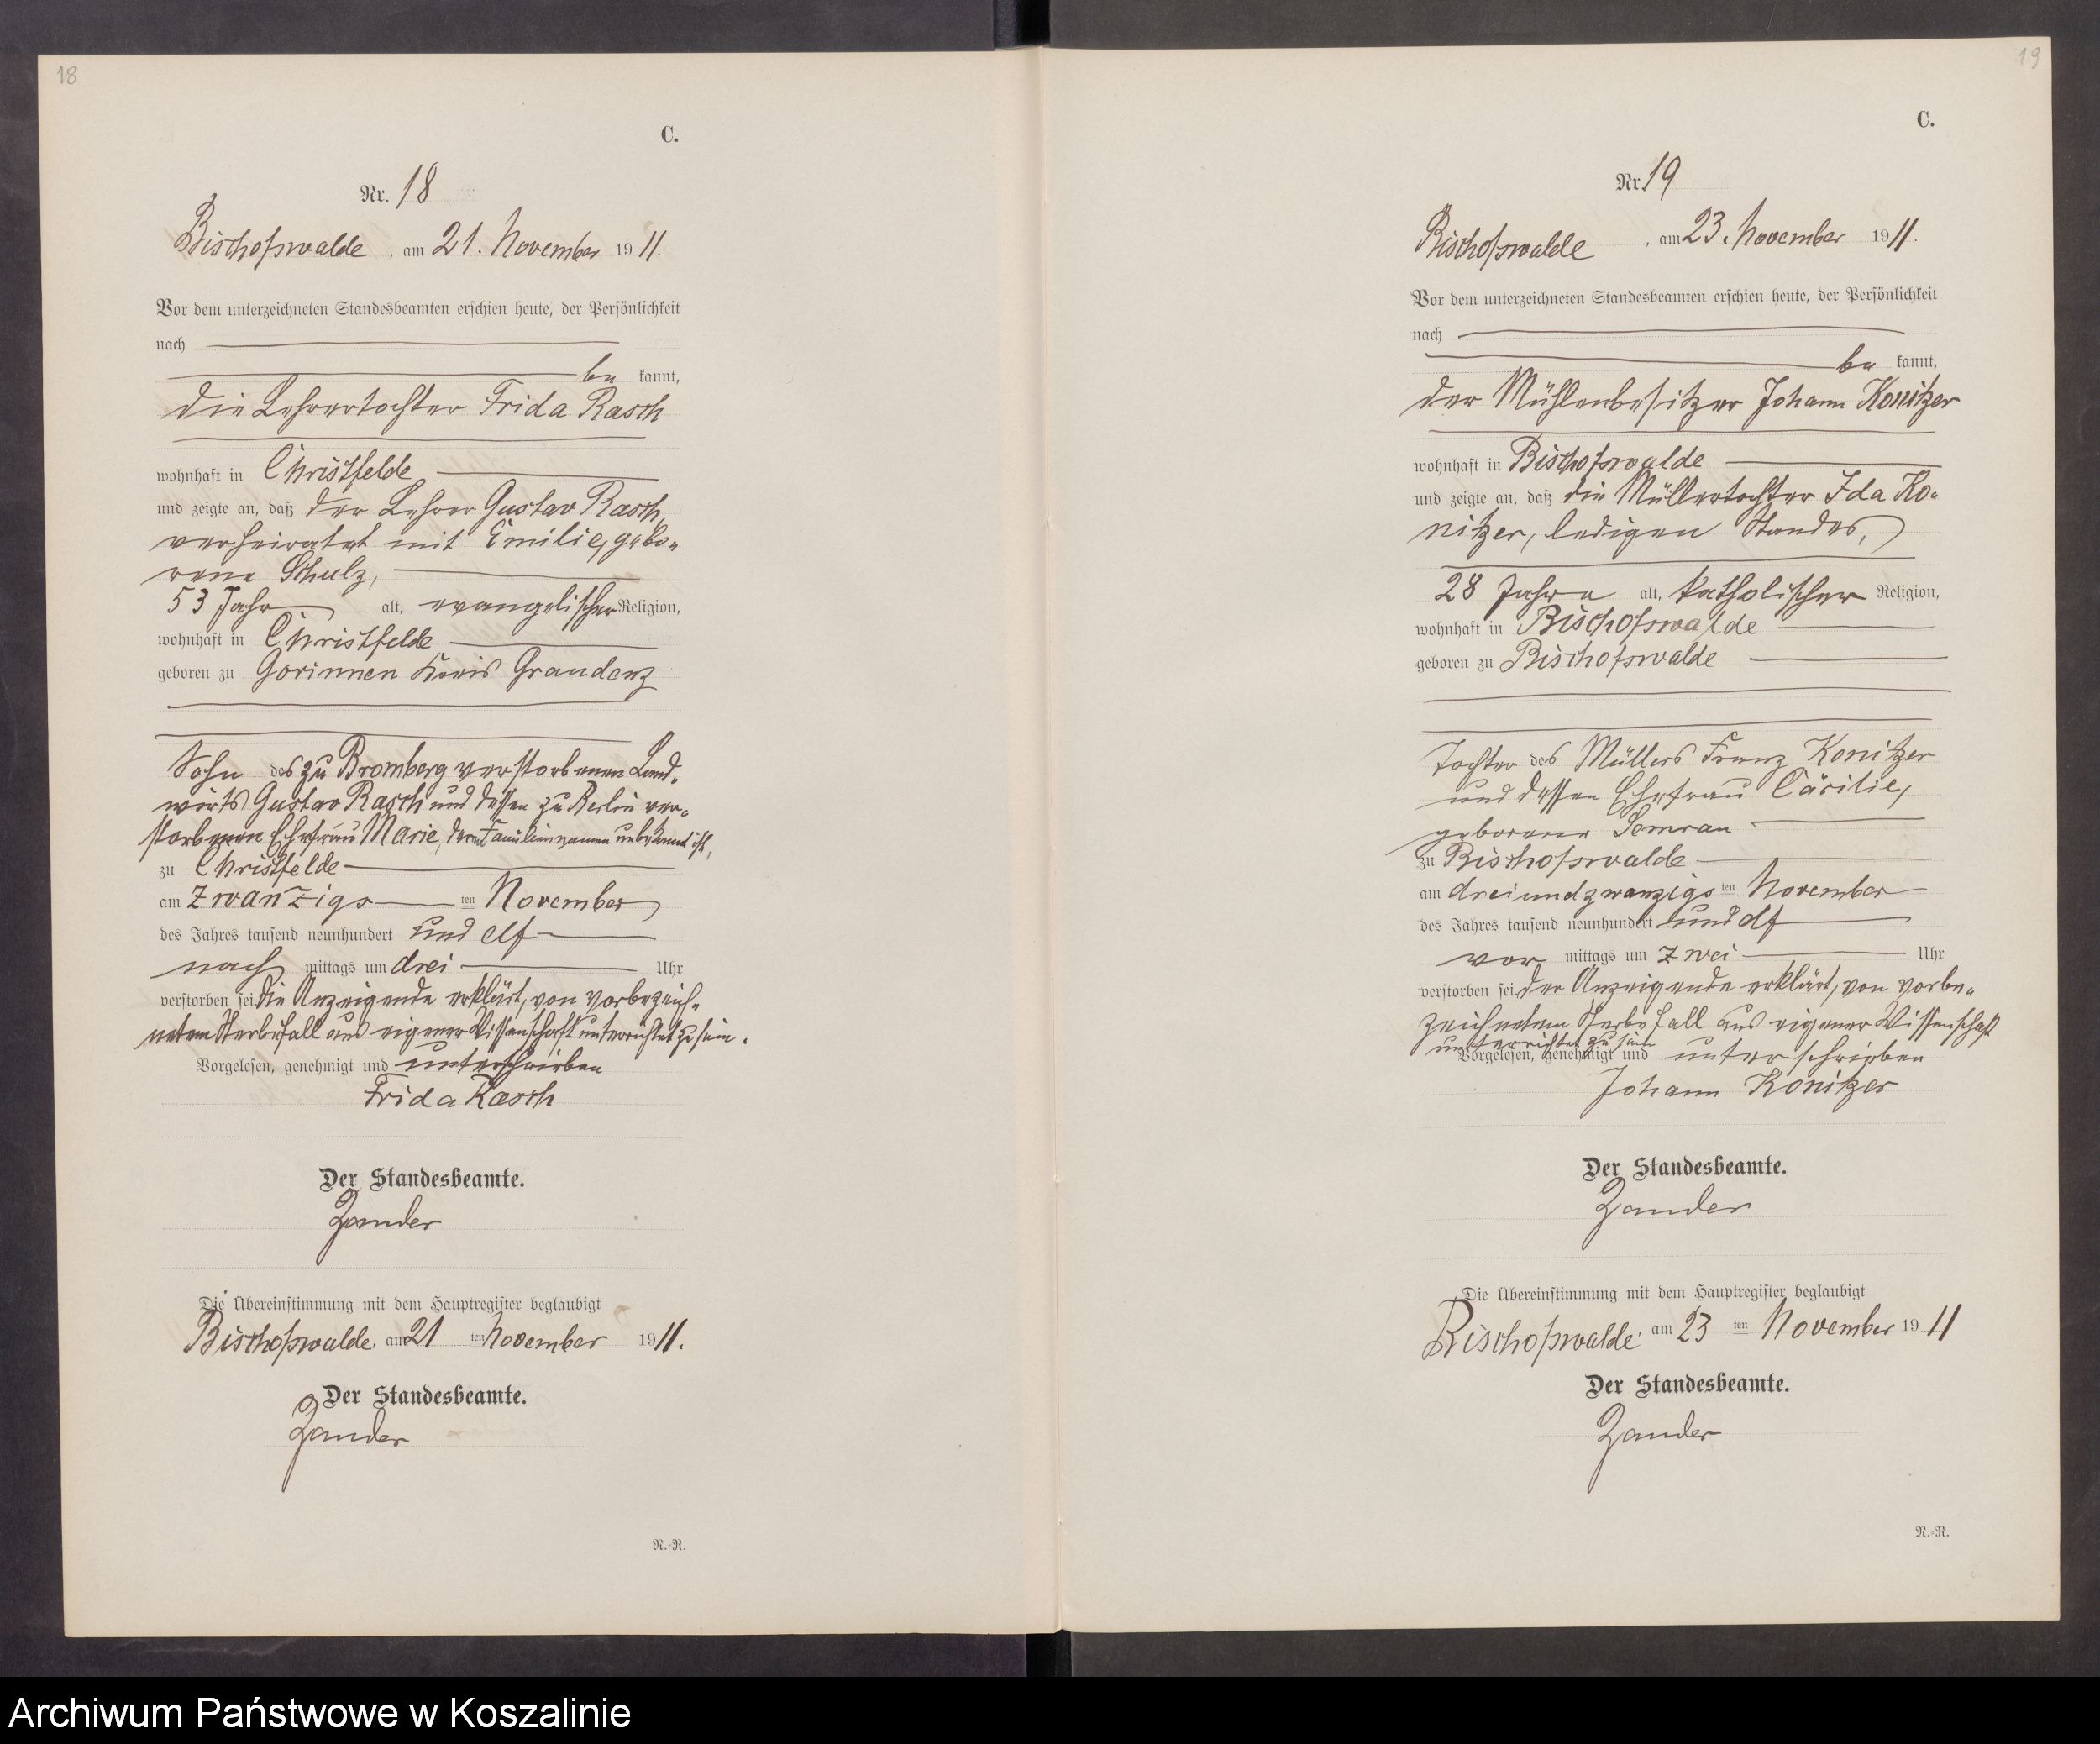 18
C.
Nr. 18
Bischofswalde, am 21. November 1911.
Vor dem unterzeichneten Standesbeamten erschien heute, der Persönlichkeit
nach
be kannt,
die Lehrertochter Frida Rasch
wohnhaft in Christfelde
und zeigte an, daß der Lehrer Gustav Rasch,
verheiratet mit Emilie, gebo-
rene Schulz,
53 Jahr alt, evangelischer Religion,
wohnhaft in Christfelde
geboren zu Gorinnen Kreis Graudenz
Sohn des zu Bromberg verstorbenen Land-
wirts Gustav Rasch und dessen zu Berlin ver-
storbenen Ehefrau Marie, deren Familiennamen unbekannt ist,
zu Christfelde
am zwanzigs ten November
des Jahres tausend neunhundert und elf
nach mittags um drei Uhr
verstorben sei. Die Anzeigende erklärt, von vorbezeich-
netem Sterbefall aus eigener Wissenschaft unterrichtet zu sein.
Vorgelesen, genehmigt und unterschrieben
Frida Rasch
Der Standesbeamte.
Zander
Die Übereinstimmung mit dem Hauptregister beglaubigt
Bischofswalde, am 21 ten November 1911.
Der Standesbeamte.
Zander
N.-R.
19
C.
Nr. 19
Bischofswalde, am 23. November 1911.
Vor dem unterzeichneten Standesbeamten erschien heute, der Persönlichkeit
nach
be kannt,
der Mühlenbesitzer Johann Konitzer
wohnhaft in Bischofswalde
und zeigte an, daß die Müllertochter Ida Ko-
nitzer, ledigen Standes,
28 Jahre alt, katholischer Religion,
wohnhaft in Bischofswalde
geboren zu Bischofswalde
Tochter des Müllers Franz Konitzer
und dessen Ehefrau Cäcilie,
geborene Semrau
zu Bischofswalde
am dreiundzwanzigs ten November
des Jahres tausend neunhundert und elf
vor mittags um zwei Uhr
verstorben sei. Der Anzeigende erklärt, von vorbe-
zeichnetem Sterbefall aus eigener Wissenschaft
unterrichtet zu sein
Vorgelesen, genehmigt und unterschrieben
Johann Konitzer
Der Standesbeamte.
Zander
Die Übereinstimmung mit dem Hauptregister beglaubigt
Bischofswalde, am 23 ten November 1911
Der Standesbeamte.
Zander
N.-R.
Archiwum Państwowe w Koszalinie